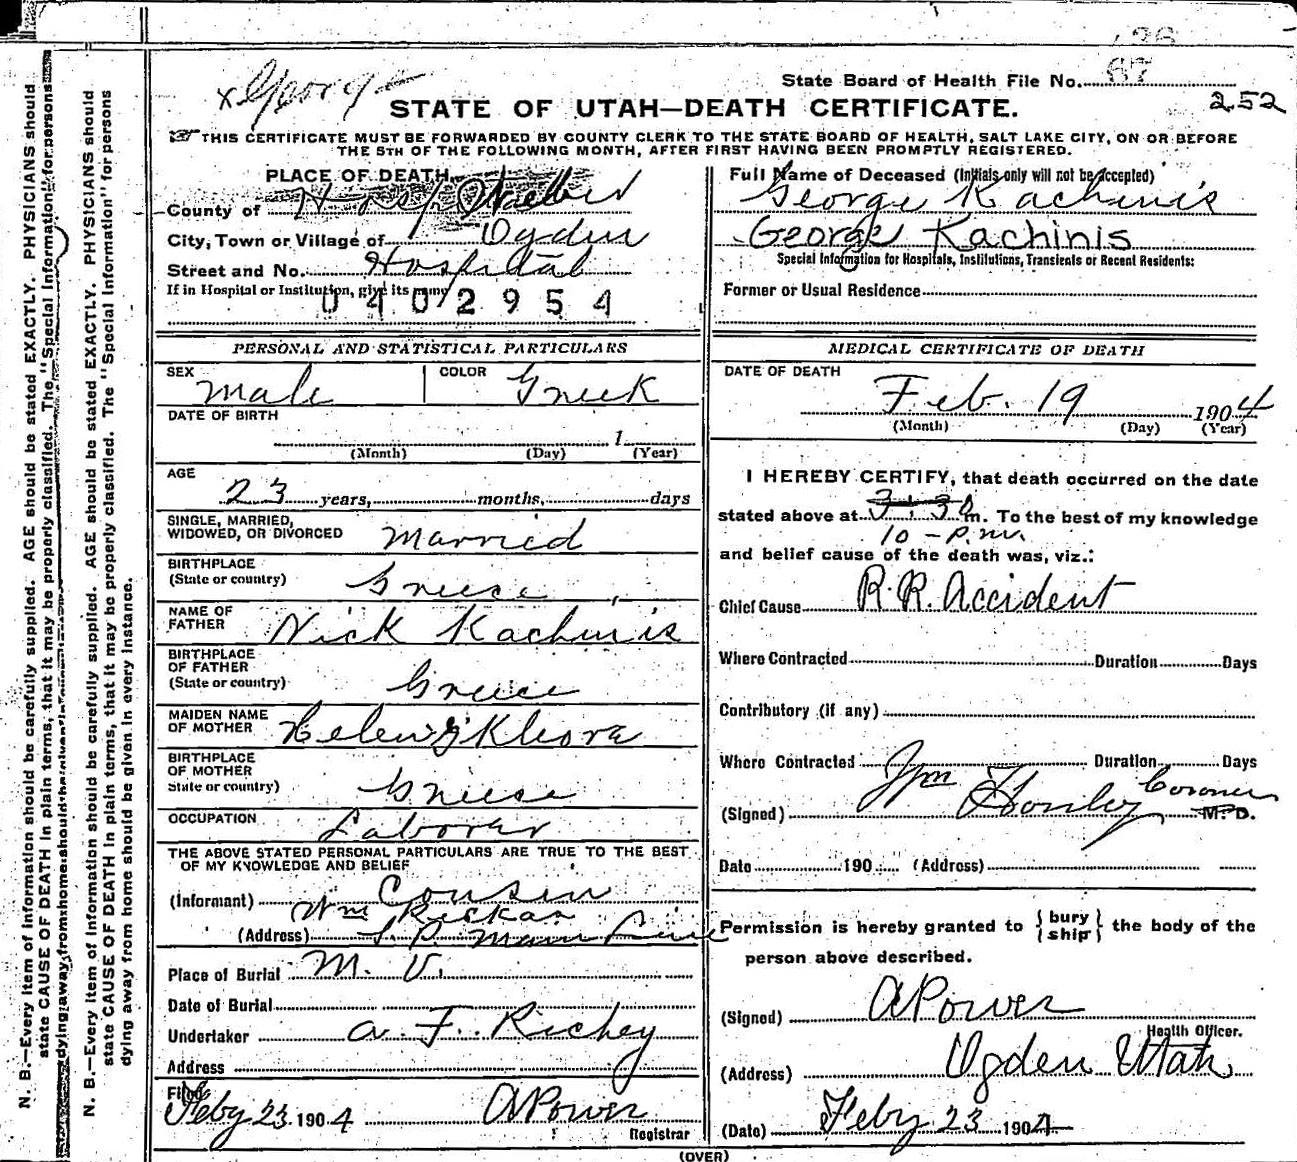 N. B.—Every item of information should be carefully supplied. AGE should be stated EXACTLY. PHYSICIANS should
state CAUSE OF DEATH in plain terms, that it may be properly classified. The "Special Information" for persons
dying away from home should be given in every instance.
N. B.—Every item of information should be carefully supplied. AGE should be stated EXACTLY. PHYSICIANS should
state CAUSE OF DEATH in plain terms, that it may be properly classified. The "Special Information" for persons
dying away from home should be given in every instance.
x George
State Board of Health File No. 67
252
STATE OF UTAH—DEATH CERTIFICATE.
THIS CERTIFICATE MUST BE FORWARDED BY COUNTY CLERK TO THE STATE BOARD OF HEALTH, SALT LAKE CITY, ON OR BEFORE
THE 5TH OF THE FOLLOWING MONTH, AFTER FIRST HAVING BEEN PROMPTLY REGISTERED.
PLACE OF DEATH.
County of Hosp Weber
City, Town or Village of Ogden
Street and No. Hospital
If in Hospital or Institution, give its name
0402954
PERSONAL AND STATISTICAL PARTICULARS
SEX Male COLOR Greek
DATE OF BIRTH
1
(Month) (Day) (Year)
AGE
23 years, months, days
SINGLE, MARRIED,
WIDOWED, OR DIVORCED Married
BIRTHPLACE
(State or country) Greece
NAME OF
FATHER Nick Kachinis
BIRTHPLACE
OF FATHER
(State or country) Greece
MAIDEN NAME
OF MOTHER Helen Kleora
BIRTHPLACE
OF MOTHER
State or country) Greece
OCCUPATION Laborer
THE ABOVE STATED PERSONAL PARTICULARS ARE TRUE TO THE BEST
OF MY KNOWLEDGE AND BELIEF
(Informant) Cousin
Wm
(Address) S. P. Main Line
Place of Burial M. V.
Date of Burial
Undertaker A. F. Richey
Address
Filed
Feby 23 1904 A Power
Registrar
Full Name of Deceased (Initials only will not be accepted)
George Kachinis
George Kachinis
Special Information for Hospitals, Institutions, Transients or Recent Residents:
Former or Usual Residence
MEDICAL CERTIFICATE OF DEATH
DATE OF DEATH
Feb. 19 1904
(Month) (Day) (Year)
I HEREBY CERTIFY, that death occurred on the date
stated above at 3:30 m. To the best of my knowledge
10 - P.M.
and belief cause of the death was, viz.:
Chief Cause R. R. Accident
Where Contracted Duration Days
Contributory (if any)
Where Contracted Duration Days
(Signed) Coroner M. D.
Date 190 (Address)
Permission is hereby granted to {bury
ship} the body of the
person above described.
(Signed) A Power
Health Officer.
(Address) Ogden Utah
(Date) Feby 23 1904
(OVER)